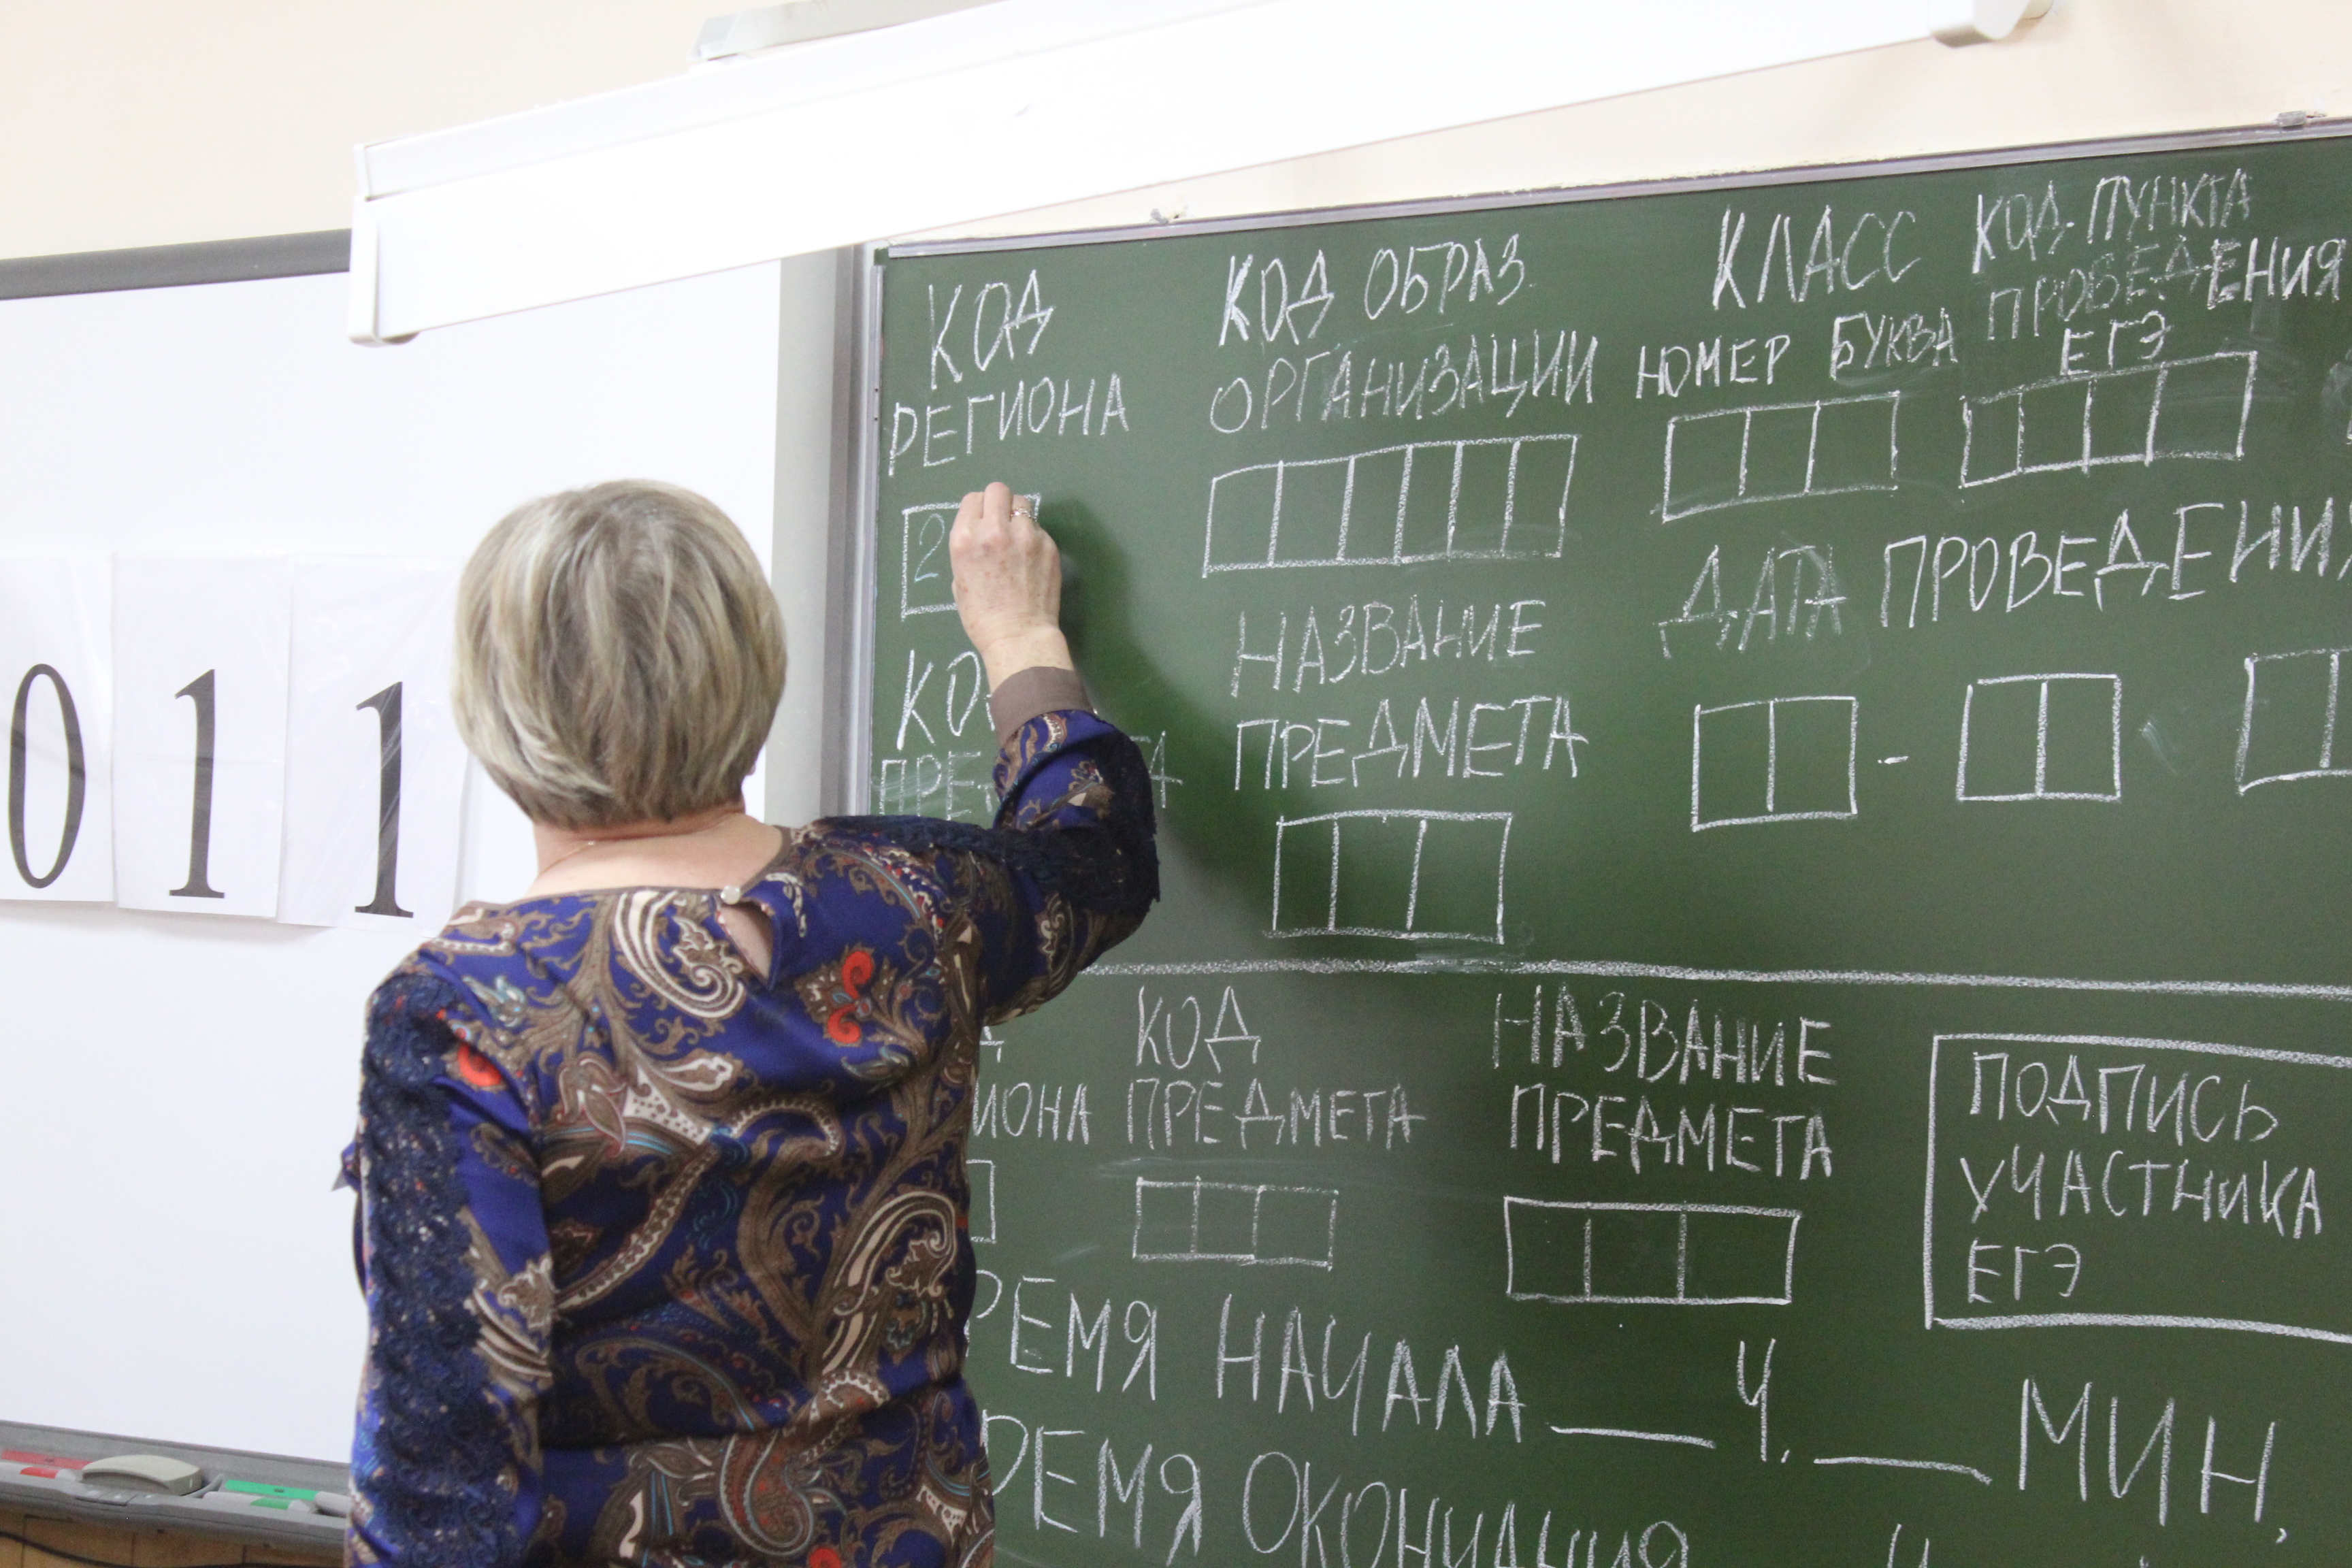 011
КОД
РЕГИОНА
2
КОД ОБРАЗ.
ОРГАНИЗАЦИИ
КЛАСС
НОМЕР БУКВА
КОД ПУНКТА
ПРОВЕДЕНИЯ
ЕГЭ
НАЗВАНИЕ
ПРЕДМЕТА
ДАТА ПРОВЕДЕНИ
- 
КОД
ПРЕДМЕТА
НАЗВАНИЕ
ПРЕДМЕТА
ПОДПИСЬ
УЧАСТНИКА
ЕГЭ
РЕМЯ НАЧАЛА ___ Ч. ___ МИН.
РЕМЯ ОКОНЧАНИЯ